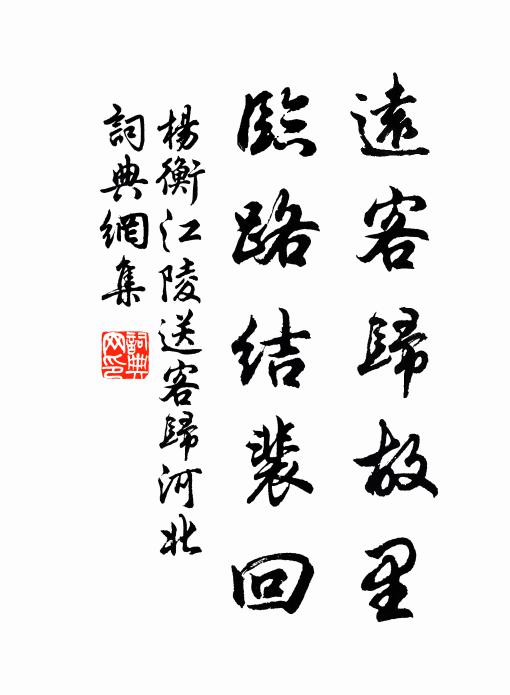 遠客歸故里
臨路結裴回
楊衡江陵送客歸河北
詞典網集
詞典
网印